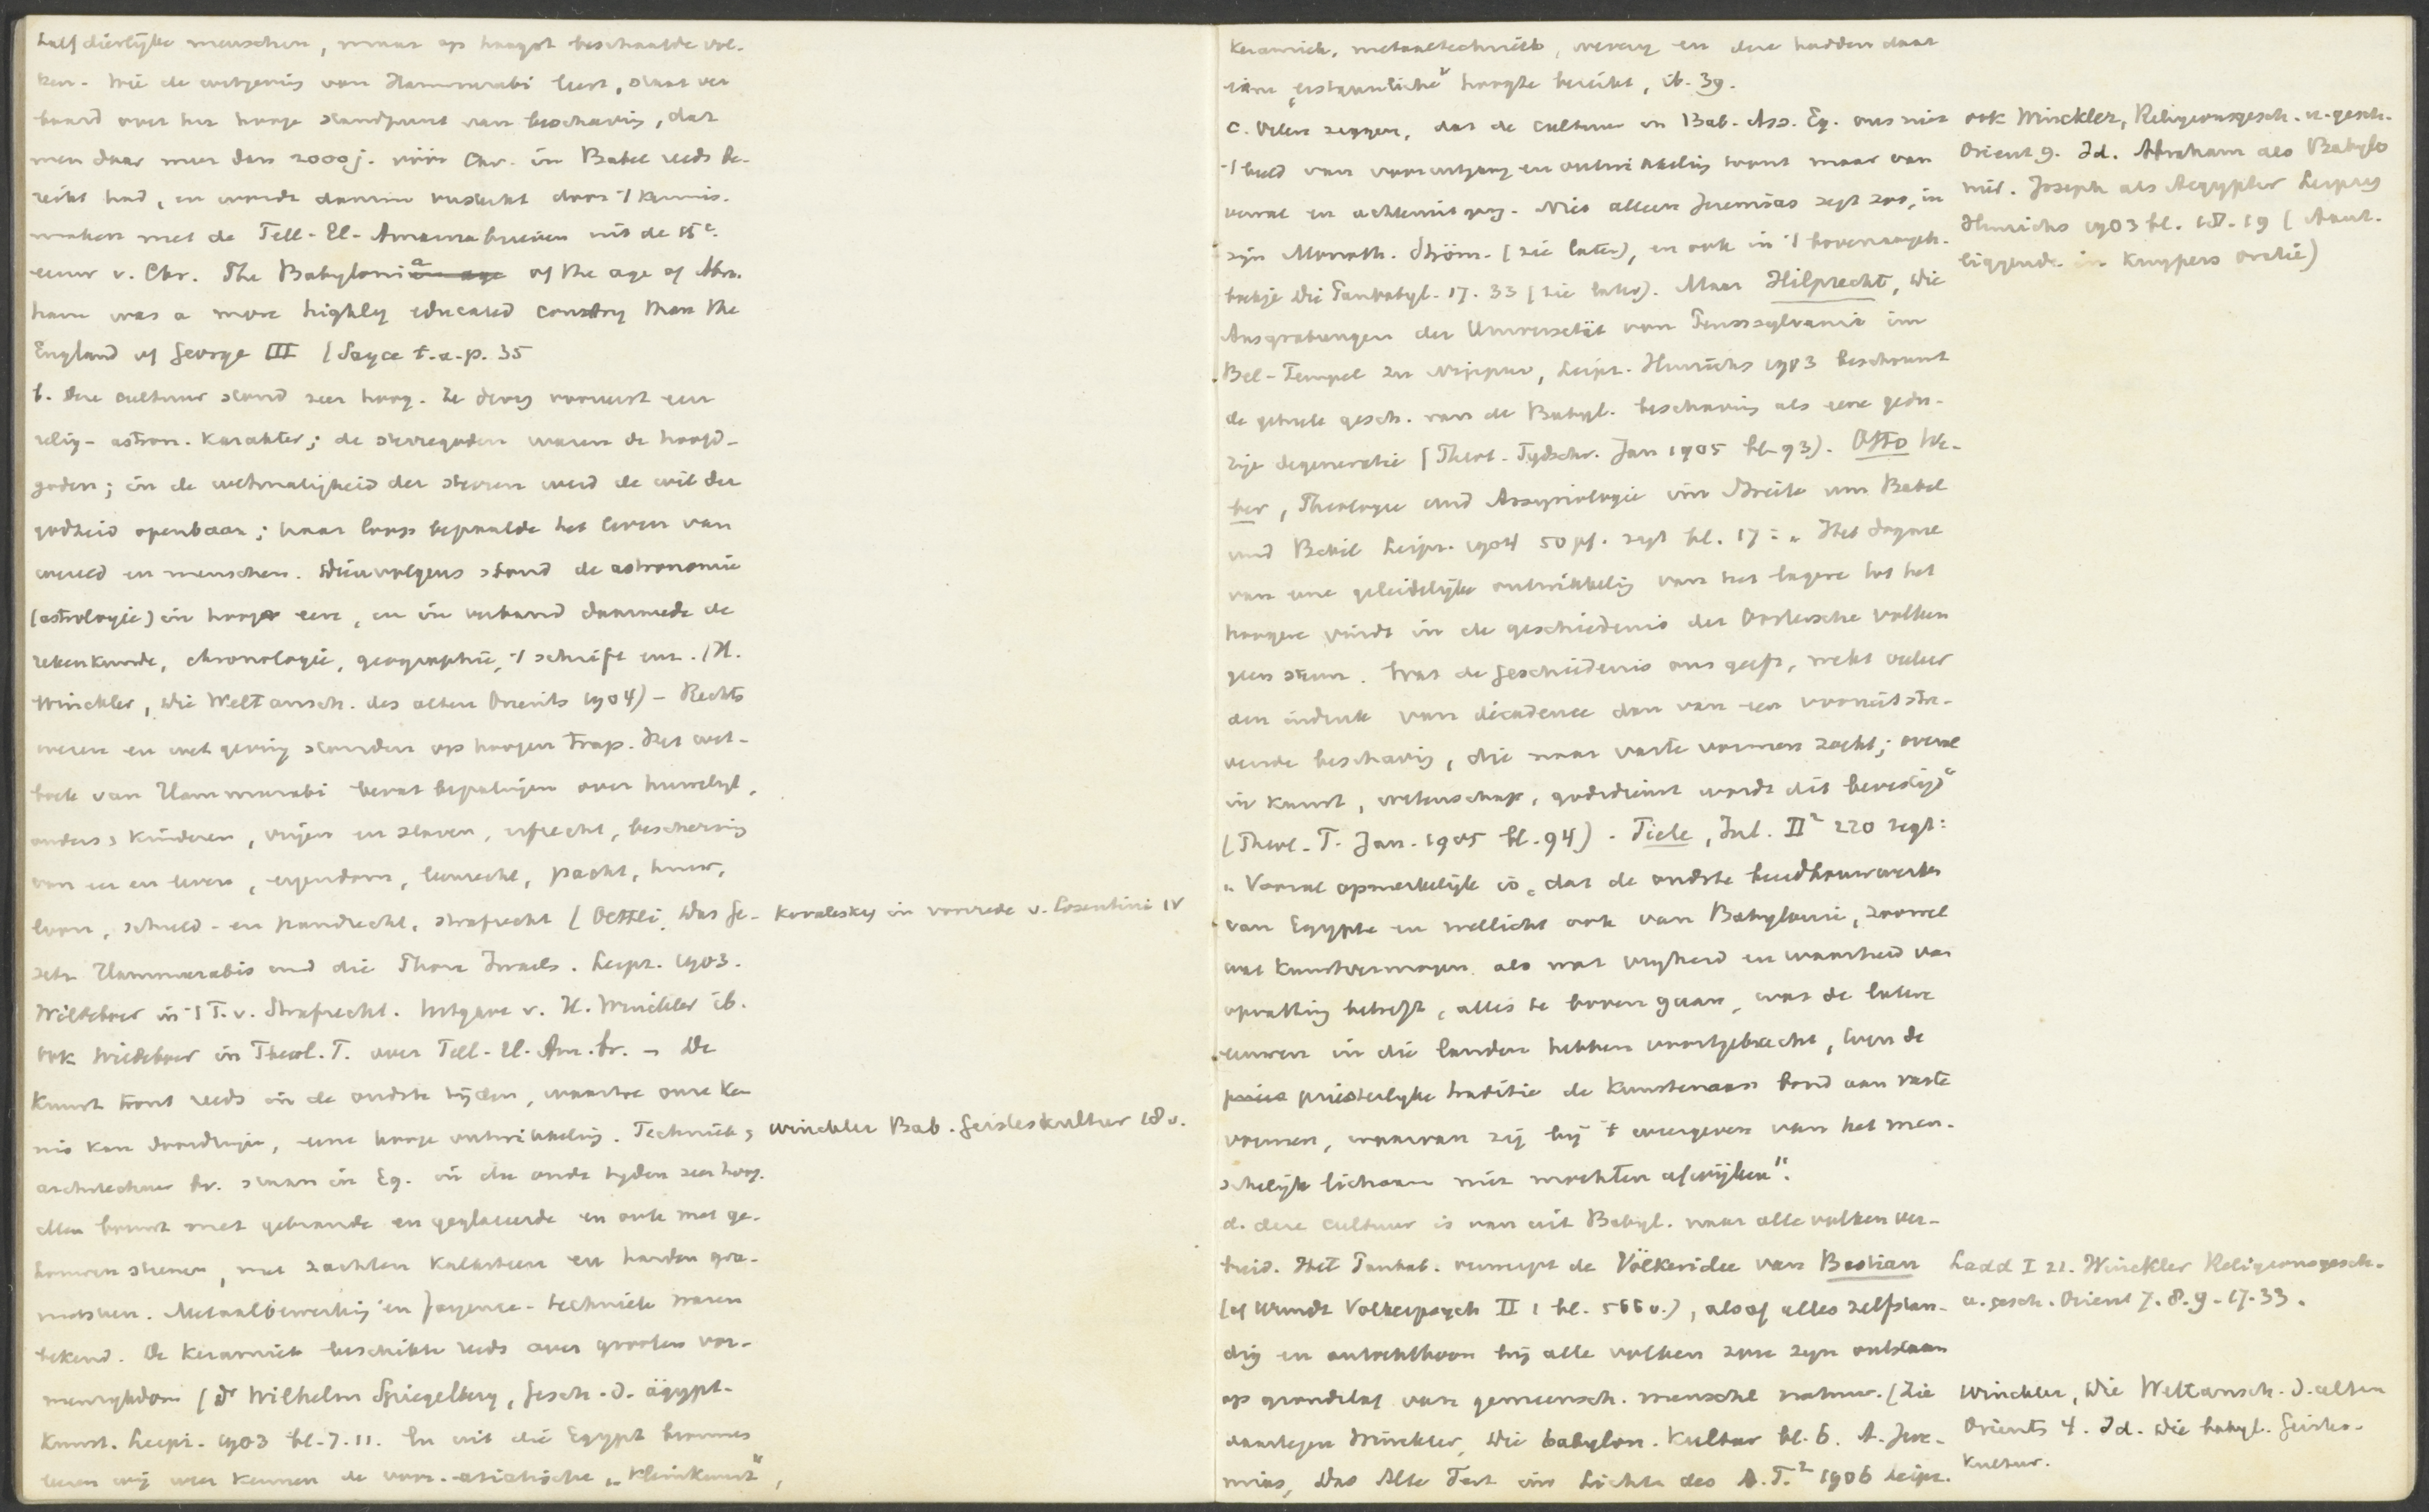 half dierlijke menschen, maar op hoogst beschaafde vol-
ken. Wie de wetgeving van Hammurabi leest, staat ver
baasd over het hooge standpunt van beschaving, dat
men daar meer dan 2000 j. vóór Chr. in Babel reeds be-
reikt had, en wordt daarin versterkt door 't kennis-
maken met de Tell-El-Amarna brieven uit de 15e
eeuw v. Chr. The Babylonia of the age of Abra.
ham was a more highly educated country than the
England of George III (Sayce t.a.p. 35
b. Deze cultuur stond zeer hoog. Ze droeg vooreerst een
relig-astron. karakter; de sterregoden waren de hoofd-
goden; in de wetmatigheid der sterren werd de wil der
godheid openbaar; haar loop bepaalde het leven van
wereld en menschen. Dienvolgens stond de astronomie
(astrologie) in hooge eere, en in verband daarmede de
rekenkunde, chronologie, geographie, 't schrift enz. (H.
Winckler, Die Weltansch. des alten Orients 1904) - Rechts
wezen en wetgeving stonden op hoogen trap. Het wet-
boek van Hammurabi bevat bepalingen over huwelijk,
ouders, kinderen, vrijen en slaven, erfrecht, bescherming
van eer en leven, eigendom, leenrecht, pacht, huur,
loon, schuld- en pandrecht, strafrecht (Oettli, Das Ge-
setz Hammurabis und die Thora Israels. Leipz. 1903.
Wildeboer in 't T. v. Strafrecht. Uitgave v. H. Winckler ib.
Ook Wildeboer in Theol. T. over Tell-El-Am. br. - De
Kunst toont reeds in de oudste tijden, waartoe onze ken
nis kan doordringen, eene hooge ontwikkeling. Techniek,
architectuur bv. staan in Eg. in die oude tijden zeer hoog.
Men bouwt met gebrande en geglazuurde en ook met ge-
houwen steenen, met zachten kalksteen en harden gra-
nietsteen. Metaalbewerking en fayence-techniek waren
bekend. De keramiek beschikte reeds over grooten vor-
menrijkdom (Dr Wilhelm Spiegelberg, Gesch. d. ägypt.
Kunst. Leipz. 1903 bl. 7. 11. En uit die Egypt bronnen
leeren wij weer kennen de voor-aziatische „Kleinkunst",
Kovalesky in voorrede v. Cosentini IV
Winckler Bab. Geisteskultur 18 v.
Keramiek, metaaltechniek, weverij en deze hadden daar
eene „erstaunliche" hoogte bereikt, ib. 39.
c. Velen zeggen, dat de cultuur in Bab. Ass. Eg. ons niet
't beeld van vooruitgang en ontwikkeling toont maar van
verval en achteruitgang. Niet alleen Jeremias zegt zoo, in
zijn Monoth. Ström. (zie later), en ook in 't bovenaangeh.
boekje Die Panbabyl. 17. 33 (zie later). Maar Hilprecht, Die
Ausgrabungen der Universität von Pennsylvania im
Bel-Tempel zu Nippur, Leipz. Hinrichs 1903 beschouwt
de geheele gesch. van de Babyl. beschaving als eene gedu-
rige degeneratie (Theol. Tijdschr. Jan 1905 bl. 93). Otto We-
ber, Theologie und Assyriologie im Streite um Babel
und Bibel Leipz. 1904 50 pf. zegt bl. 17: „Het dogma
van eene geleidelijke ontwikkeling van het lagere tot het
hoogere vindt in de geschiedenis der Oostersche volken
geen steun. Wat de geschiedenis ons geeft, wekt veeleer
den indruk van décadence dan van een vooruitstre-
vende beschaving, die naar vaste vormen zoekt; overal
in kunst, wetenschap, godsdienst wordt dit bevestigd"
(Theol. T. Jan. 1905 bl. 94). Tiele, Inl. II² 220 zegt:
„Vooral opmerkelijk is, dat de oudste beeldhouwwerken
van Egypte en wellicht ook van Babylonie, zoowel
wat kunstvermogen als wat vrijheid en waarheid van
opvatting betreft, alles te boven gaan, wat de latere
eeuwen in die landen hebben voortgebracht, toen de
priesterlijke traditie de kunstenaars bond aan vaste
vormen, waarvan zij bij 't weergeven van het men-
schelijk lichaam niet mochten afwijken".
d. deze cultuur is van uit Babyl. naar alle volken ver-
breid. Het Panbab. verwerpt de Völkeridee van Bastian
(cf Wundt Volkerpsych II 1 bl. 566 v.), alsof alles zelfstan-
dig en autochthoon bij alle volken zou zijn ontstaan
op grondslag van gemeensch. menschel. natuur. (Zie
daartegen Winckler, Die babylon. Kultur bl. 6. A. Jere-
mias, Das Alte Test im Lichte des A. T.² 1906 Leipz.
ook Winckler, Religionsgesch. u. gesch.
Orient 9. Id. Abraham als Babylo
nier. Joseph als Aegypter Leipzig
Hinrichs 1903 bl. 18. 19 (Aant.
liggende in Kuypers oratie)
Ladd I 21. Winckler Religionsgesch.
u. gesch. Orient 7. 8. 9. 17. 33.
Winckler, Die Weltansch. d. alten
Orients 4. Id. Die babyl. Geistes-
kultur.